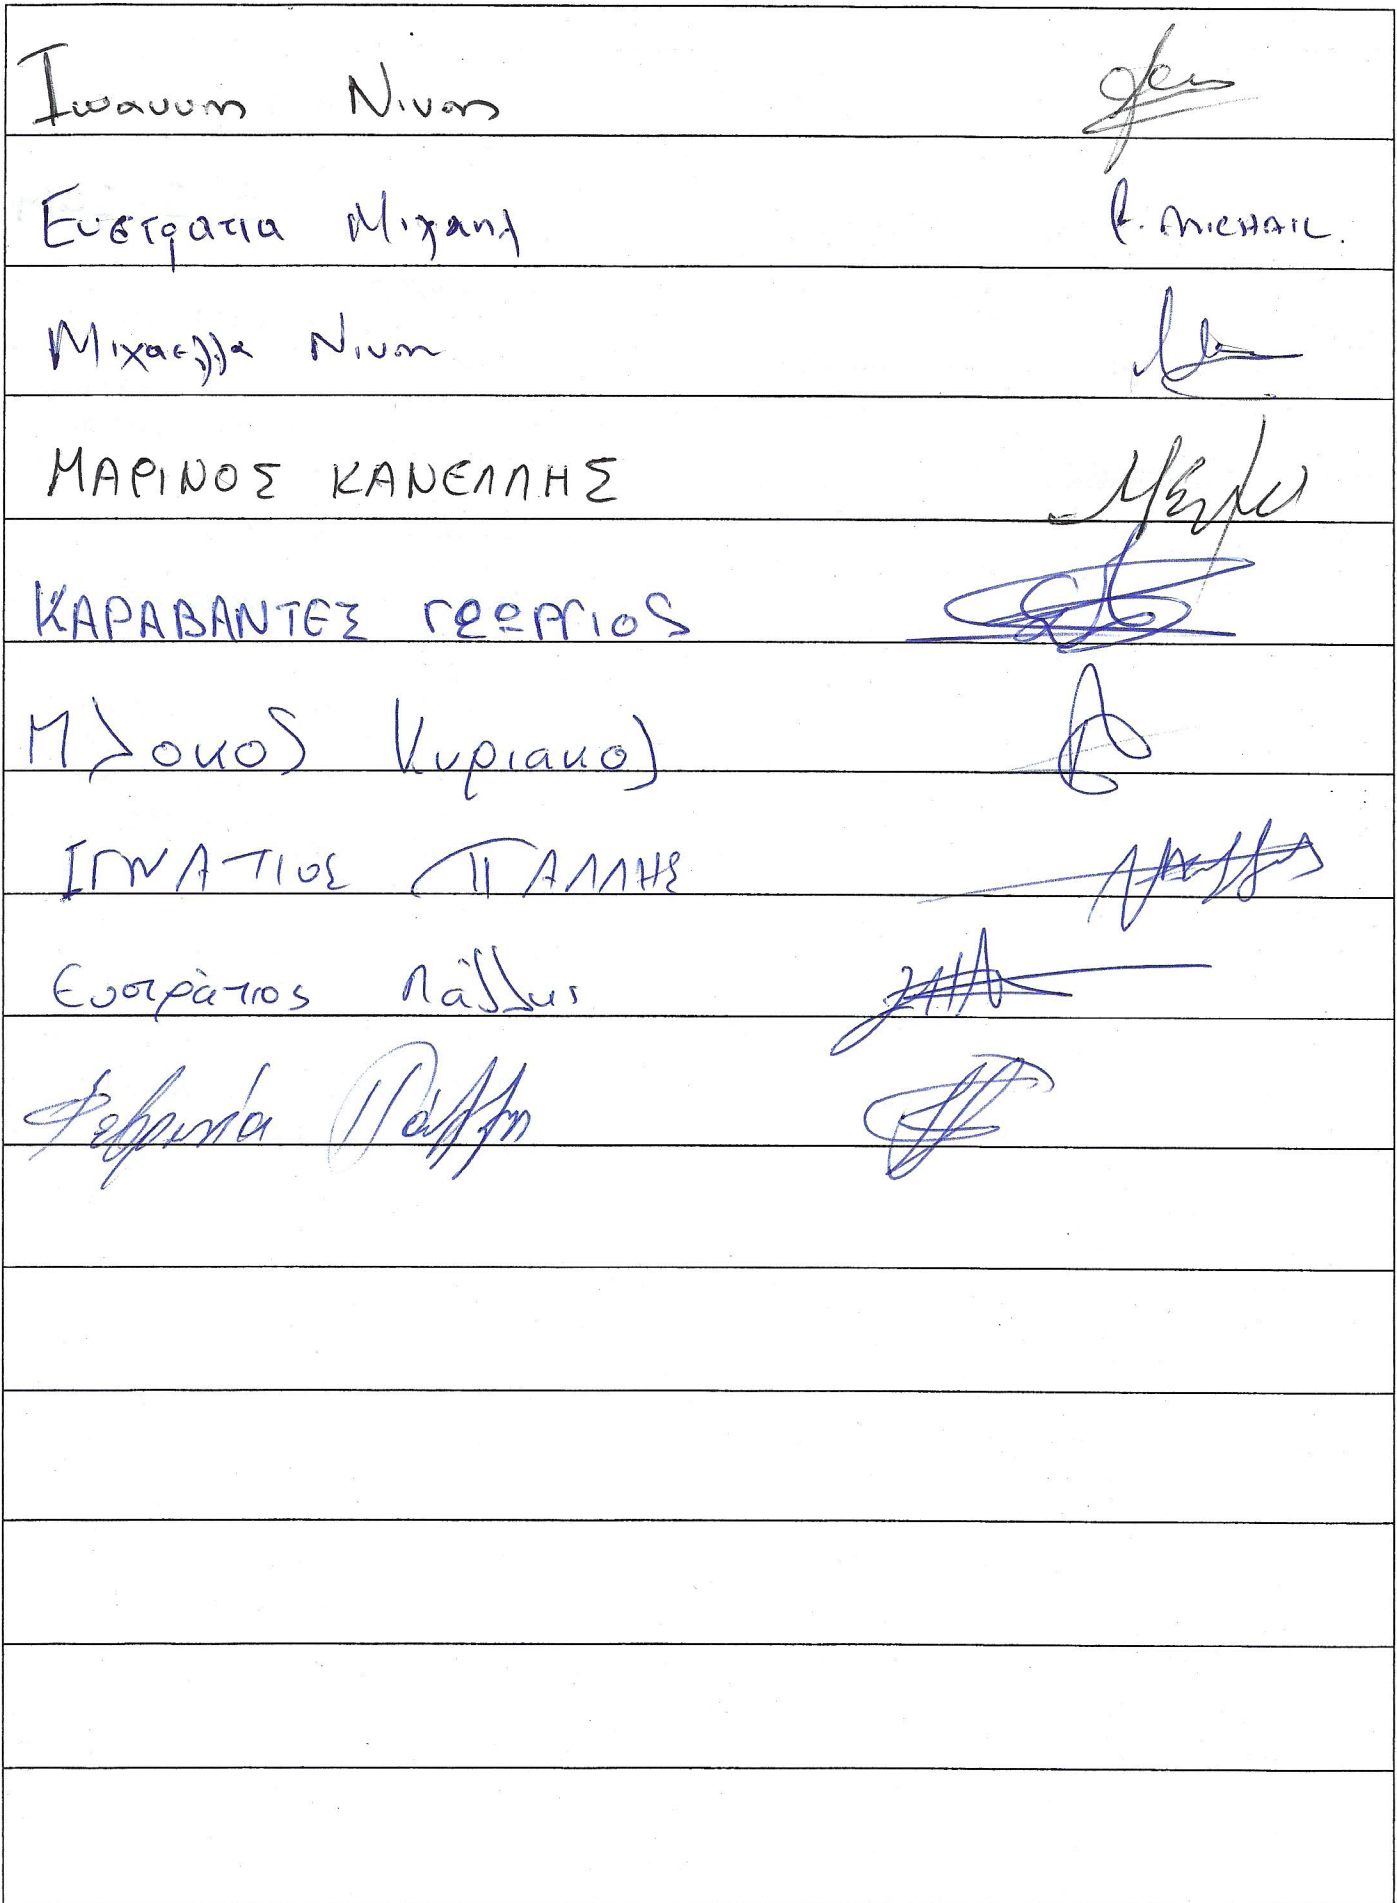 Ιωαννης Νινος
Ευστρατια Μιχαηλ E. MICHAIL.
Μιχαελλα Νινου
ΜΑΡΙΝΟΣ ΚΑΝΕΛΛΗΣ
ΚΑΡΑΒΑΝΤΕΣ ΓΕΩΡΓΙΟS
Μλοκος Κυριακος
ΙΓΝΑΤΙΟΣ ΠΑΛΛΗΣ
Ευστράτιος Πάλλης
Φεβρωνία Πάλλη